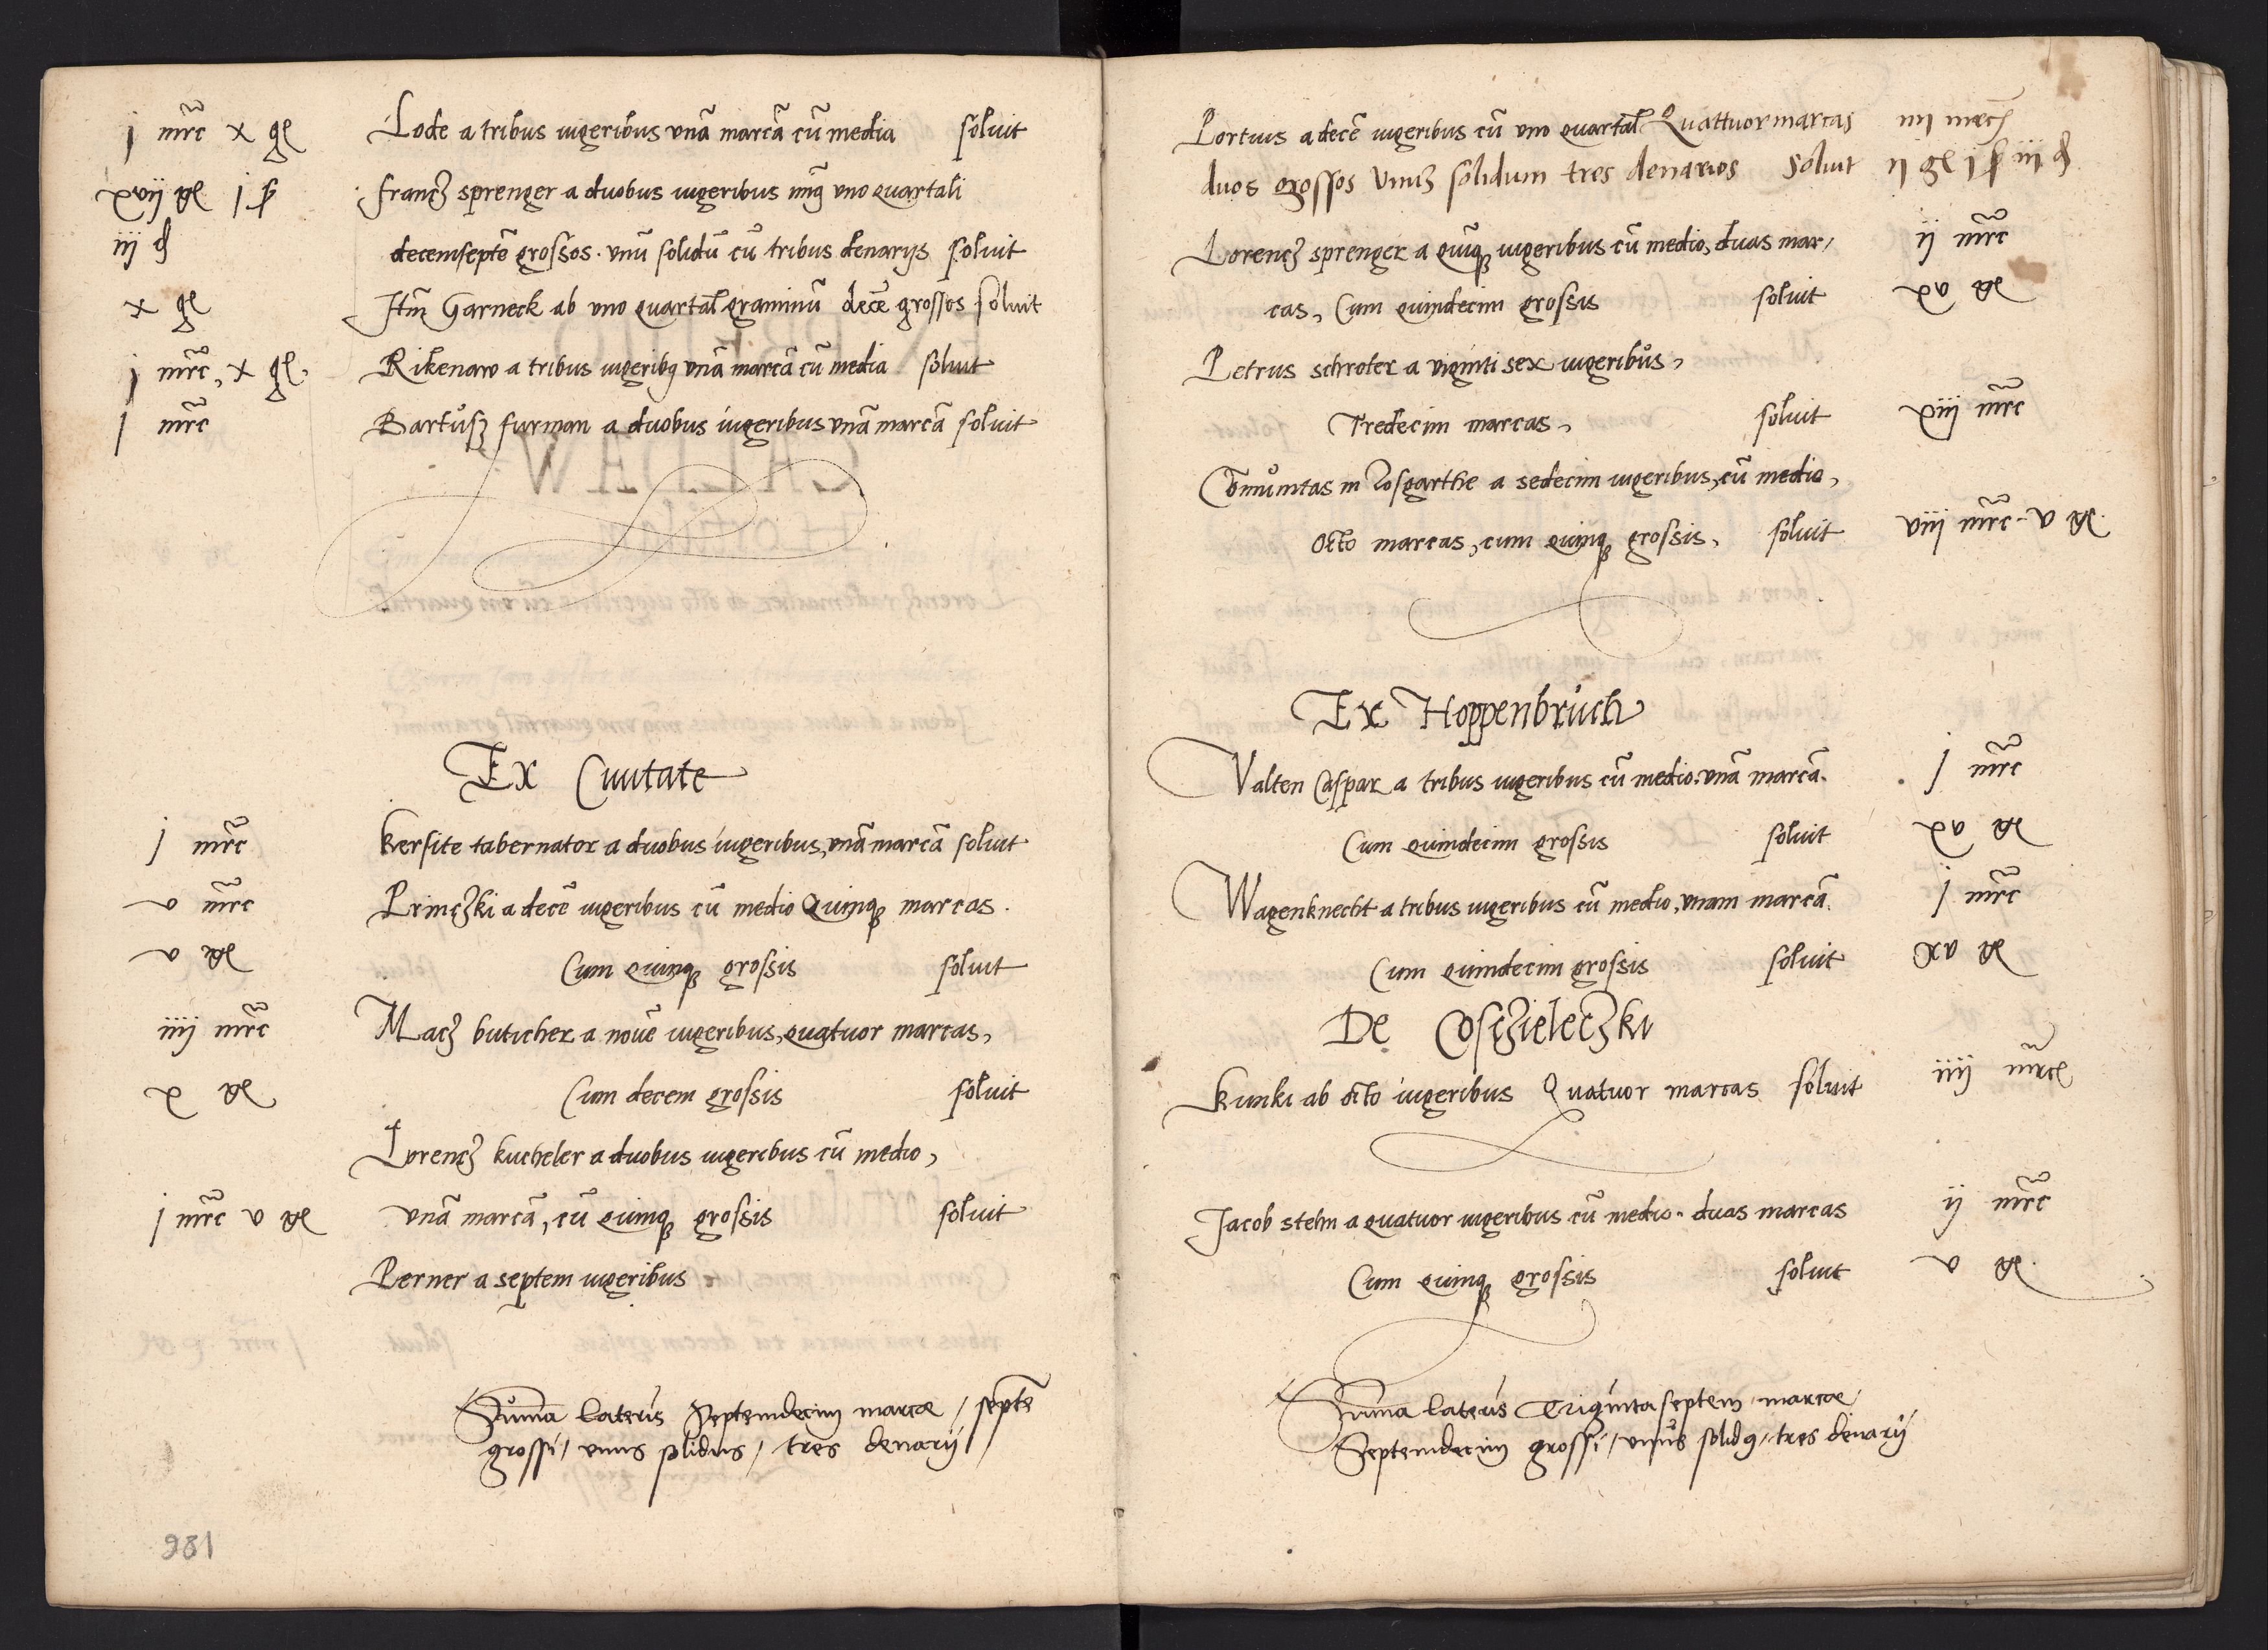 j mrc̃ x gɫ Lode a tribus iugeribus vnã marcã cũ media soluit
xvij gɫ j ſ Franc̨ sprenger a duobus iugeribus mĩg vno quartali
iij đ decemseptẽ grossos. vnũ solidũ cũ tribus denarijs soluit
x gɫ Itm̃ Garneck ab vno quartaɫ graminũ decẽ grossos soluit
j mrc̃, x gɫ. Rikenaw a tribus iugeribꝫ vnã marcã cũ media soluit
j mrc̃ Bartůsz furman a duobus iugeribus vnã marcã soluit
Ex Ciuitate
j mrc̃ kersite tabernator a duobus iugeribus, vnã marcã soluit
v mrc̃ Princzki a decẽ iugeribus cũ medio Quinqꝫ marcas.
v gɫ Cum quinqꝫ grossis soluit
iiij mrc̃ Macz buticher a nouẽ iugeribus, quatuor marcas,
x gɫ Cum decem grossis soluit
Lorencz kucheler a duobus iugeribus cũ medio,
j mrc̃ v gɫ vnã marcã, cũ quinqꝫ grossis soluit
Perner a septem iugeribus
Sům̃a lateris Septemdecim marcæ / septẽ
grossi / vnus solidus / tres denarij /
281
Portuis a decẽ iugeribus cũ vno quartaɫ Quattuor marcas iiij mrc̃
duos grossos Vnuȝ solidum tres denarios Soluit ij gɫ j ſ iij đ
Lorencz sprenger a quĩqꝫ iugeribus cũ medio, duas mar/ ij mrc̃
cas, Cum quindecim grossis soluit xv gɫ
Petrus schroter a viginti sex iugeribůs,
Tredecim marcas, soluit xiij mrc̃
Cõmůnitas in Rosgarthe a sedecim iugeribus, cũ medio,
octo marcas, cum quinqꝫ grossis, soluit viij mrc̃ - v gɫ.
Ex Hoppenbrůch
Valten Caspar a tribus iugeribus cũ medio. vnã marcã. j mrc̃
Cum quindecim grossis soluit xv gɫ
Wagenknecht a tribus iugeribus cũ medio, vnam marcã. j mrc̃
Cum quindecim grossis soluit xv gɫ
De Cosczieleczki
kunki ab octo iugeribus Quatuor marcas soluit iiij mrc̃
Jacob stehn a quatuor iugeribus cũ medio. duas marcas ij mrc̃
Cum quinqꝫ grossis soluit v gɫ.
Sum̃a lateris Triginta septem marcæ /
Septemdecim grossi / vnůs solidꝫ / tres denarij